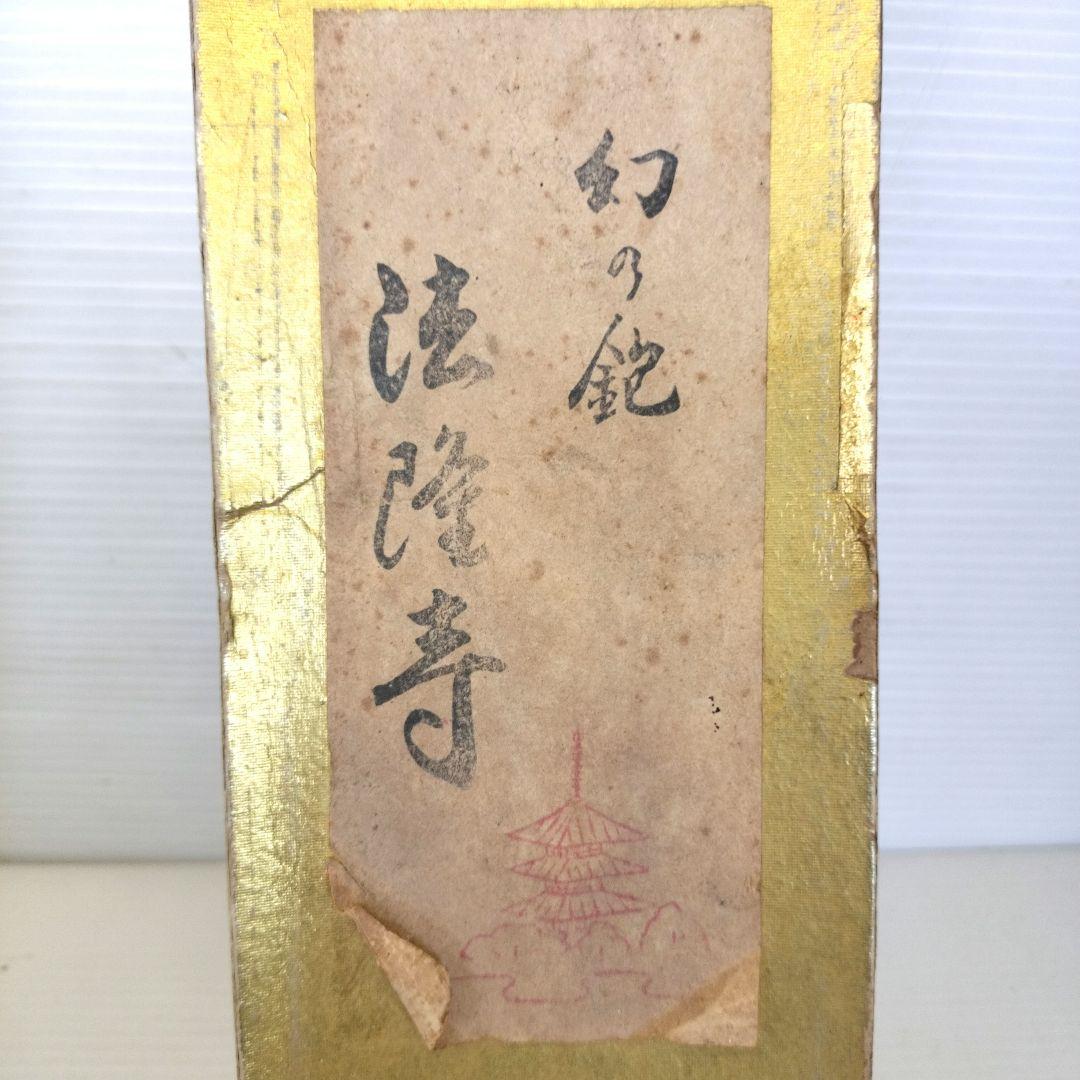 幻の鉋
法隆寺